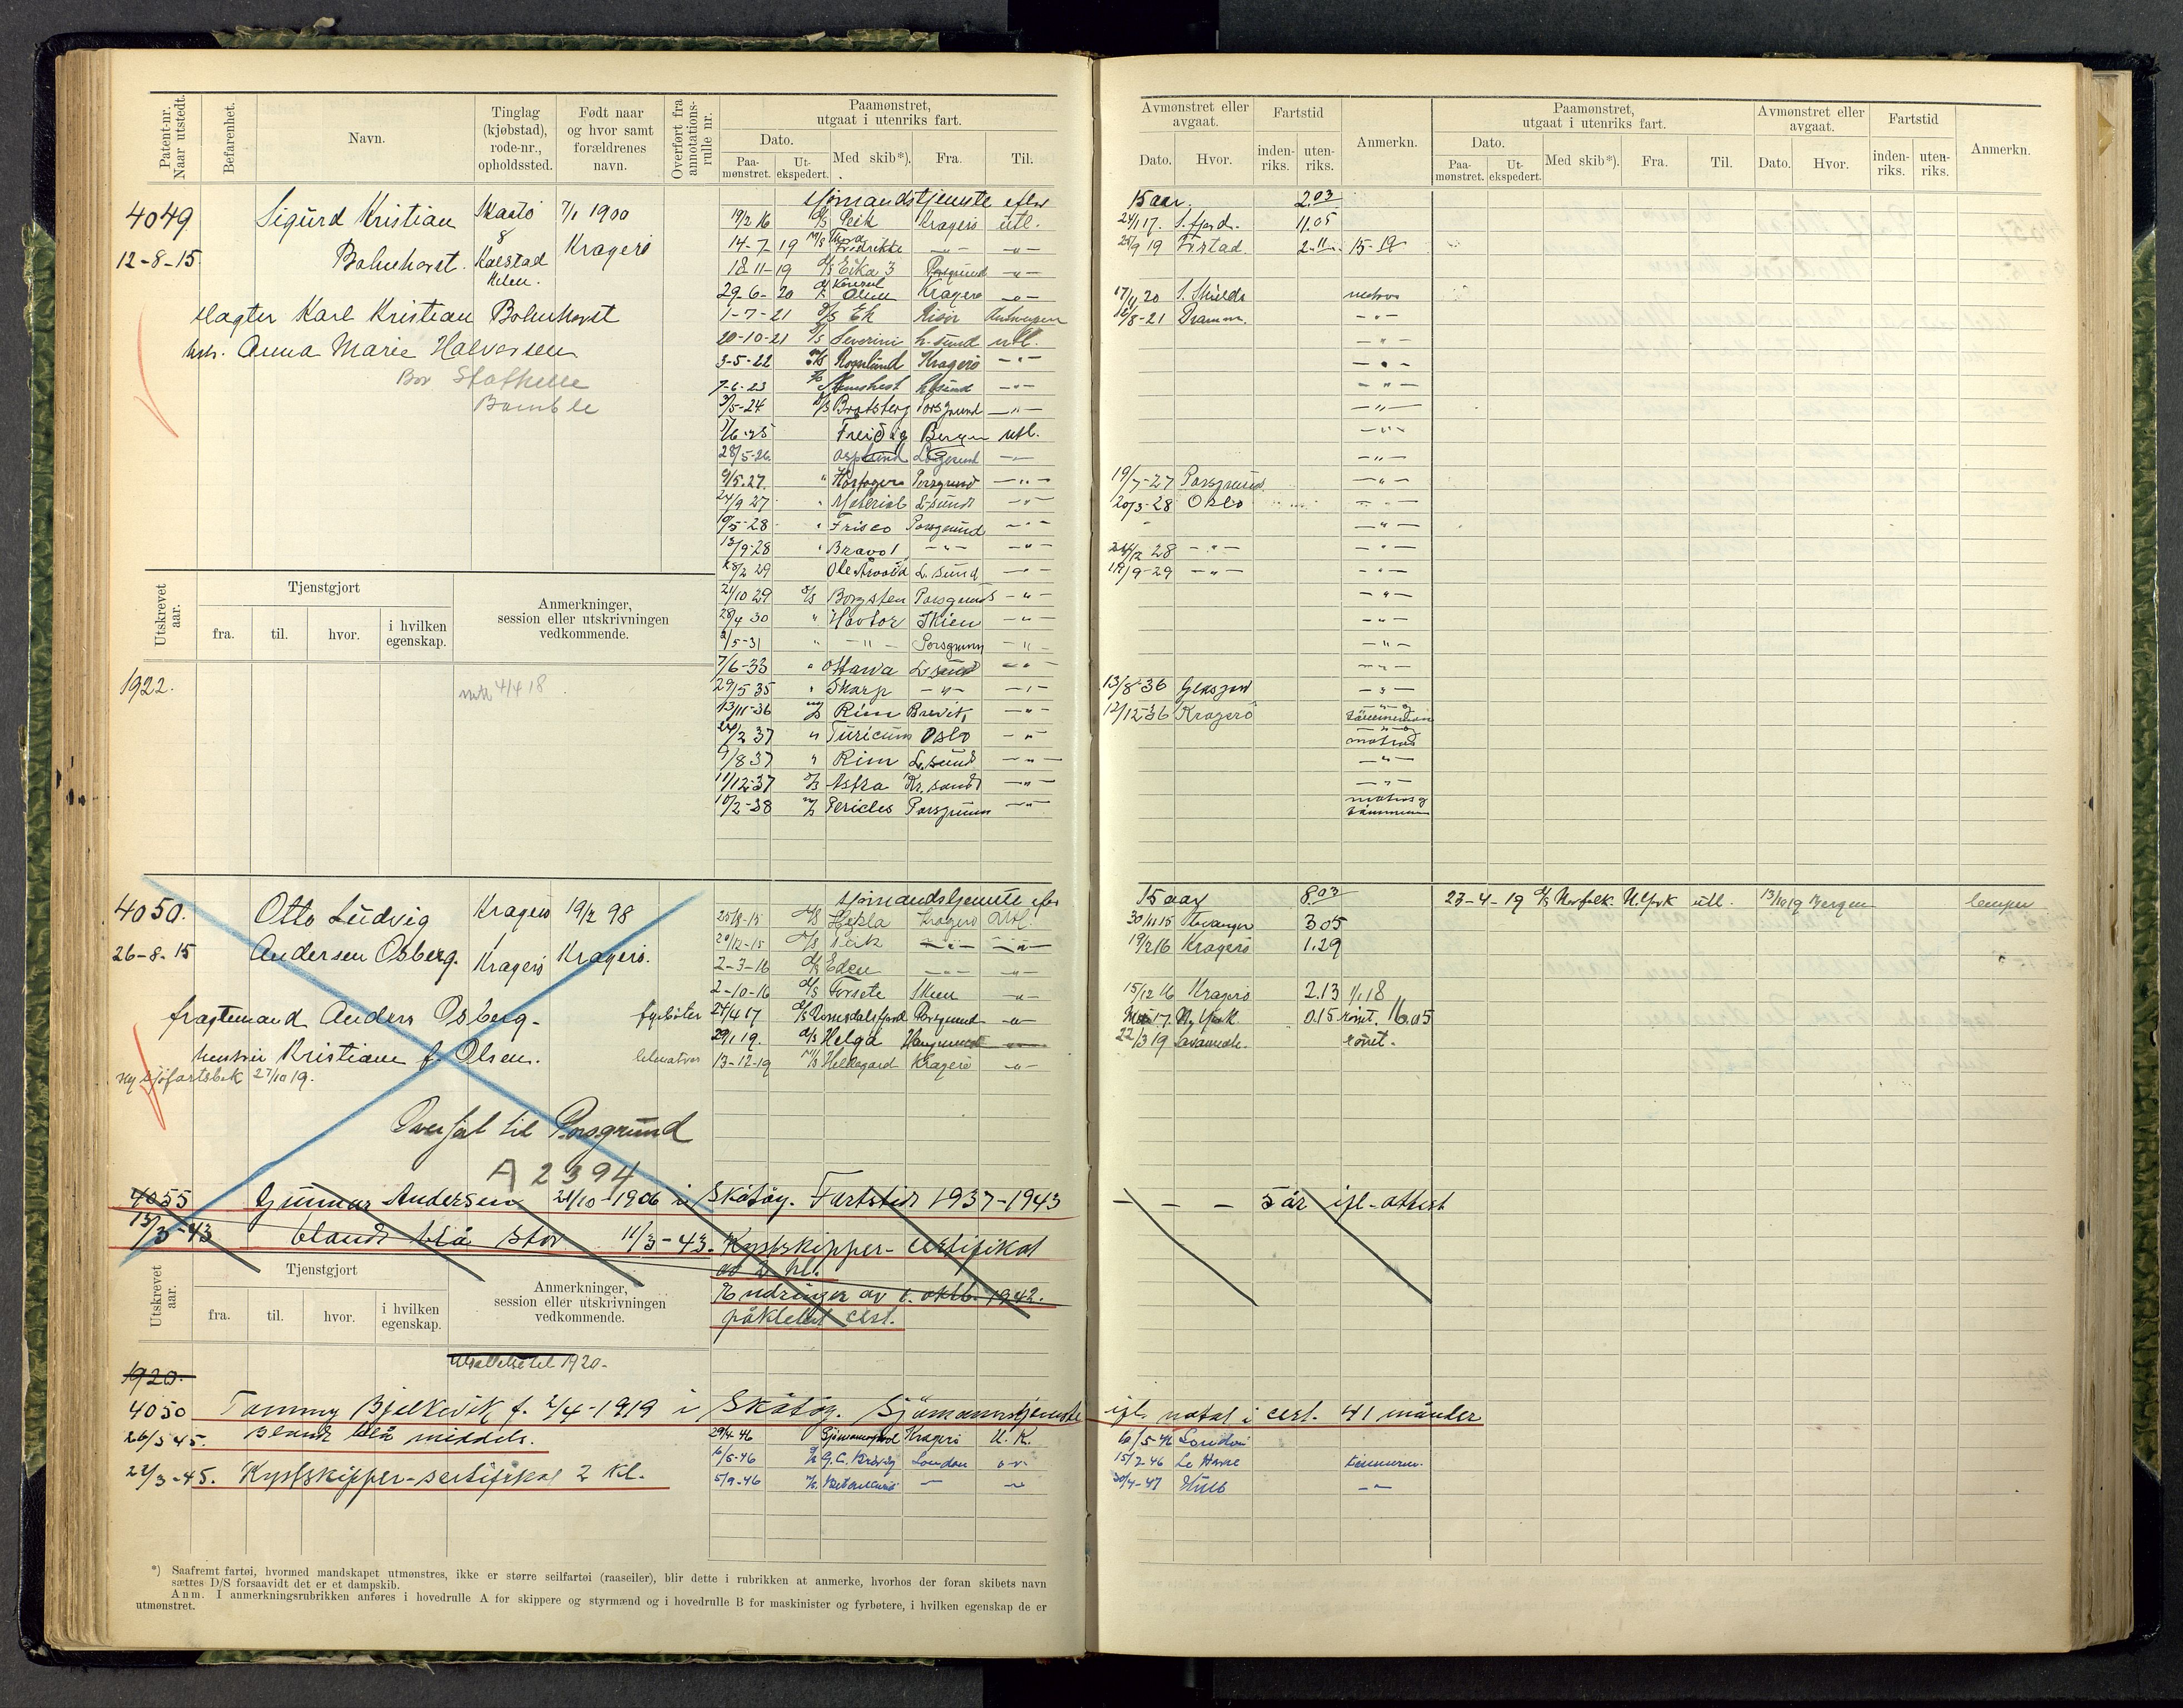 Patent-nr. Naar utstedt.
Befarenhet.
Navn.
Tinglag (kjøbstad), rode-nr., opholdssted.
Født naar og hvor samt forældrenes navn.
Overført fra annotations-rulle nr.
Paamønstret, utgaat i utenriks fart.
Dato.
Paa-mønstret.
Ut-ekspedert.
Med skib*).
Fra.
Til.
Avmønstret eller avgaat.
Dato.
Hvor.
Fartstid
inden-riks.
uten-riks.
Anmerkn.
Paamønstret, utgaat i utenriks fart.
Dato.
Paa-mønstret.
Ut-ekspedert.
Med skib*).
Fra.
Til.
Avmønstret eller avgaat.
Dato.
Hvor.
Fartstid
inden-riks.
uten-riks.
Anmerkn.
sjømandstjeneste efter 15 aar. 2.03
4049 Sigurd Kristian Skaatø 7/1 1900
8
12-8-15 Bolmhorst. Kalstad Kragerø
Kilen.
slagter Karl Kristian Bolmhorst
hstr. Anna Marie Halvorsen
Bor Stathelle
Bamble
19/2 16 D/S Peik Kragerø utl. 24/1 17. 11.05
14-7 19 M/S Thora Fredrikke — — -"- 25/9 19 2.11 15-19
18-11-19 D/S Eika 3 Porsgrund -"-
29-6-20 D/S Konsul Olsen Kragerø -"- 17/11 20 S. Shields matros
1-7-21 D/S Ek Risør Antwerpen 16/8-21 Dramm. -"-
20-10-21 D/S Severini L-sund utl. -"-
3-5-22 Kragerø -"- -"-
7-6-23 L-sund -"- -"-
3/5-24 D/S Bratsberg Porsgrund -"- -"-
7/6-25 Freidig Bergen utl. -"-
28/5-26. Asplund -"-
9/5.27. " Porsgrund -"- 19/7-27 Porsgrund -"-
24/9 27 " L-sund -"- 20/3-28 Oslo -"-
9/5-28 " Frisco Porsgrund -"- -"-
13/9-28 " Bravo I -"- -"- 28 -"- -"-
18/2 29 L. sund -"- 19/9-29 -"- -"-
21/10 29 S/S Borgsten Porsgrund -"- -"-
28/4 30 " Havtor Skien -"- -"-
2/5-31 " -"- Porsgrunn -"- -"-
7/6-33 " Ottawa L-sund -"- -"-
29/5 35 " Skarp -"- -"- 13/8-36 -"-
13/11-36 M/S Rim Brevik -"- 12/12-36 Kragerø -"- og tömmermann
24/2 37 " Turicum Oslo -"- -"- og matros
9/8 37 " Rim L.sund -"- -"-
11/12-37 D/S Astra Kr. sand -"- -"-
10/2-38 M/S Pericles Porsgrunn -"- matros og tömmermann
Utskrevet aar.
Tjenstgjort
fra.
til.
hvor.
i hvilken egenskap.
Anmerkninger, session eller utskrivningen vedkommende.
1922. 4/4 18
sjømandstjeneste efter 15 aar 8.03
4050. Otto Ludvig Kragerø 19/2 98
26-8-15 Andersen Osberg. Kragerø Kragerø.
fragtemand Anders Osberg-
hustru Kristiane f. Olsen.
ny sjøfartsbok 27/10 19.
25/8-15 D/S Hekla Kragerø Utl. 30/11 15 Stavanger 3.05
20/12-15 D/S Peik -"- -"- 19/2 16 Kragerø 1.29
2-3-16 D/S Eden — — -"-
2-10-16 D/S Forsete Skien -"- 15/12 16 Kragerø 2.13 1/1 18
fyrbøter 24/4 17 D/S Romsdalsfjord Porsgrund -"- 17. Ny York 0.15 rømt. 16.05
29/1 19. D/S Helga Haugesund -"- 22/3 19 Savannah. rømt.
letmatros 13-12-19 M/S Kragerø -"-
23-4-19 D/S Norfolk. N.York utl. 13/10 19 Bergen lemper
Overført til Porsgrund
A 2394
4055 Gunnar Andersen 21/10-1906 i Skåtøy. Fartstid 1937-1943 — — — 5 år ifl. attest
13/3-43 blandt blå stor 11/3-43. Kystskipper-certifikat
av 2 kl.
Endringer av 1. oktb. 1942.
påklebet cert.
Utskrevet aar.
Tjenstgjort
fra.
til.
hvor.
i hvilken egenskap.
Anmerkninger, session eller utskrivningen vedkommende.
1920.
4050 Tommy Bjelkevik f. 2/4-1919 i Skåtøy. Sjömannstjeneste ifl. notat i cert. 41 månder
26/3 45. Blandt blå middels.
22/3-45. Kystskipper-sertifikat 2 kl.
29/4 46 Kragerø U.K. 10/5-46 London
16/5-46 G.C. Brövig London -"- 15/7 46 Le Havre tömmerm.
5/9-46 — -"- 30/4-47 Hull -"-
*) Saafremt fartøi, hvormed mandskapet utmønstres, ikke er større seilfartøi (raaseiler), blir dette i rubrikken at anmerke, hvorhos der foran skibets navn
sættes D/S forsaavidt det er et dampskib.
Anm. I anmerkningsrubrikken anføres i hovedrulle A for skippere og styrmænd og i hovedrulle B for maskinister og fyrbøtere, i hvilken egenskap de er
utmønstret.